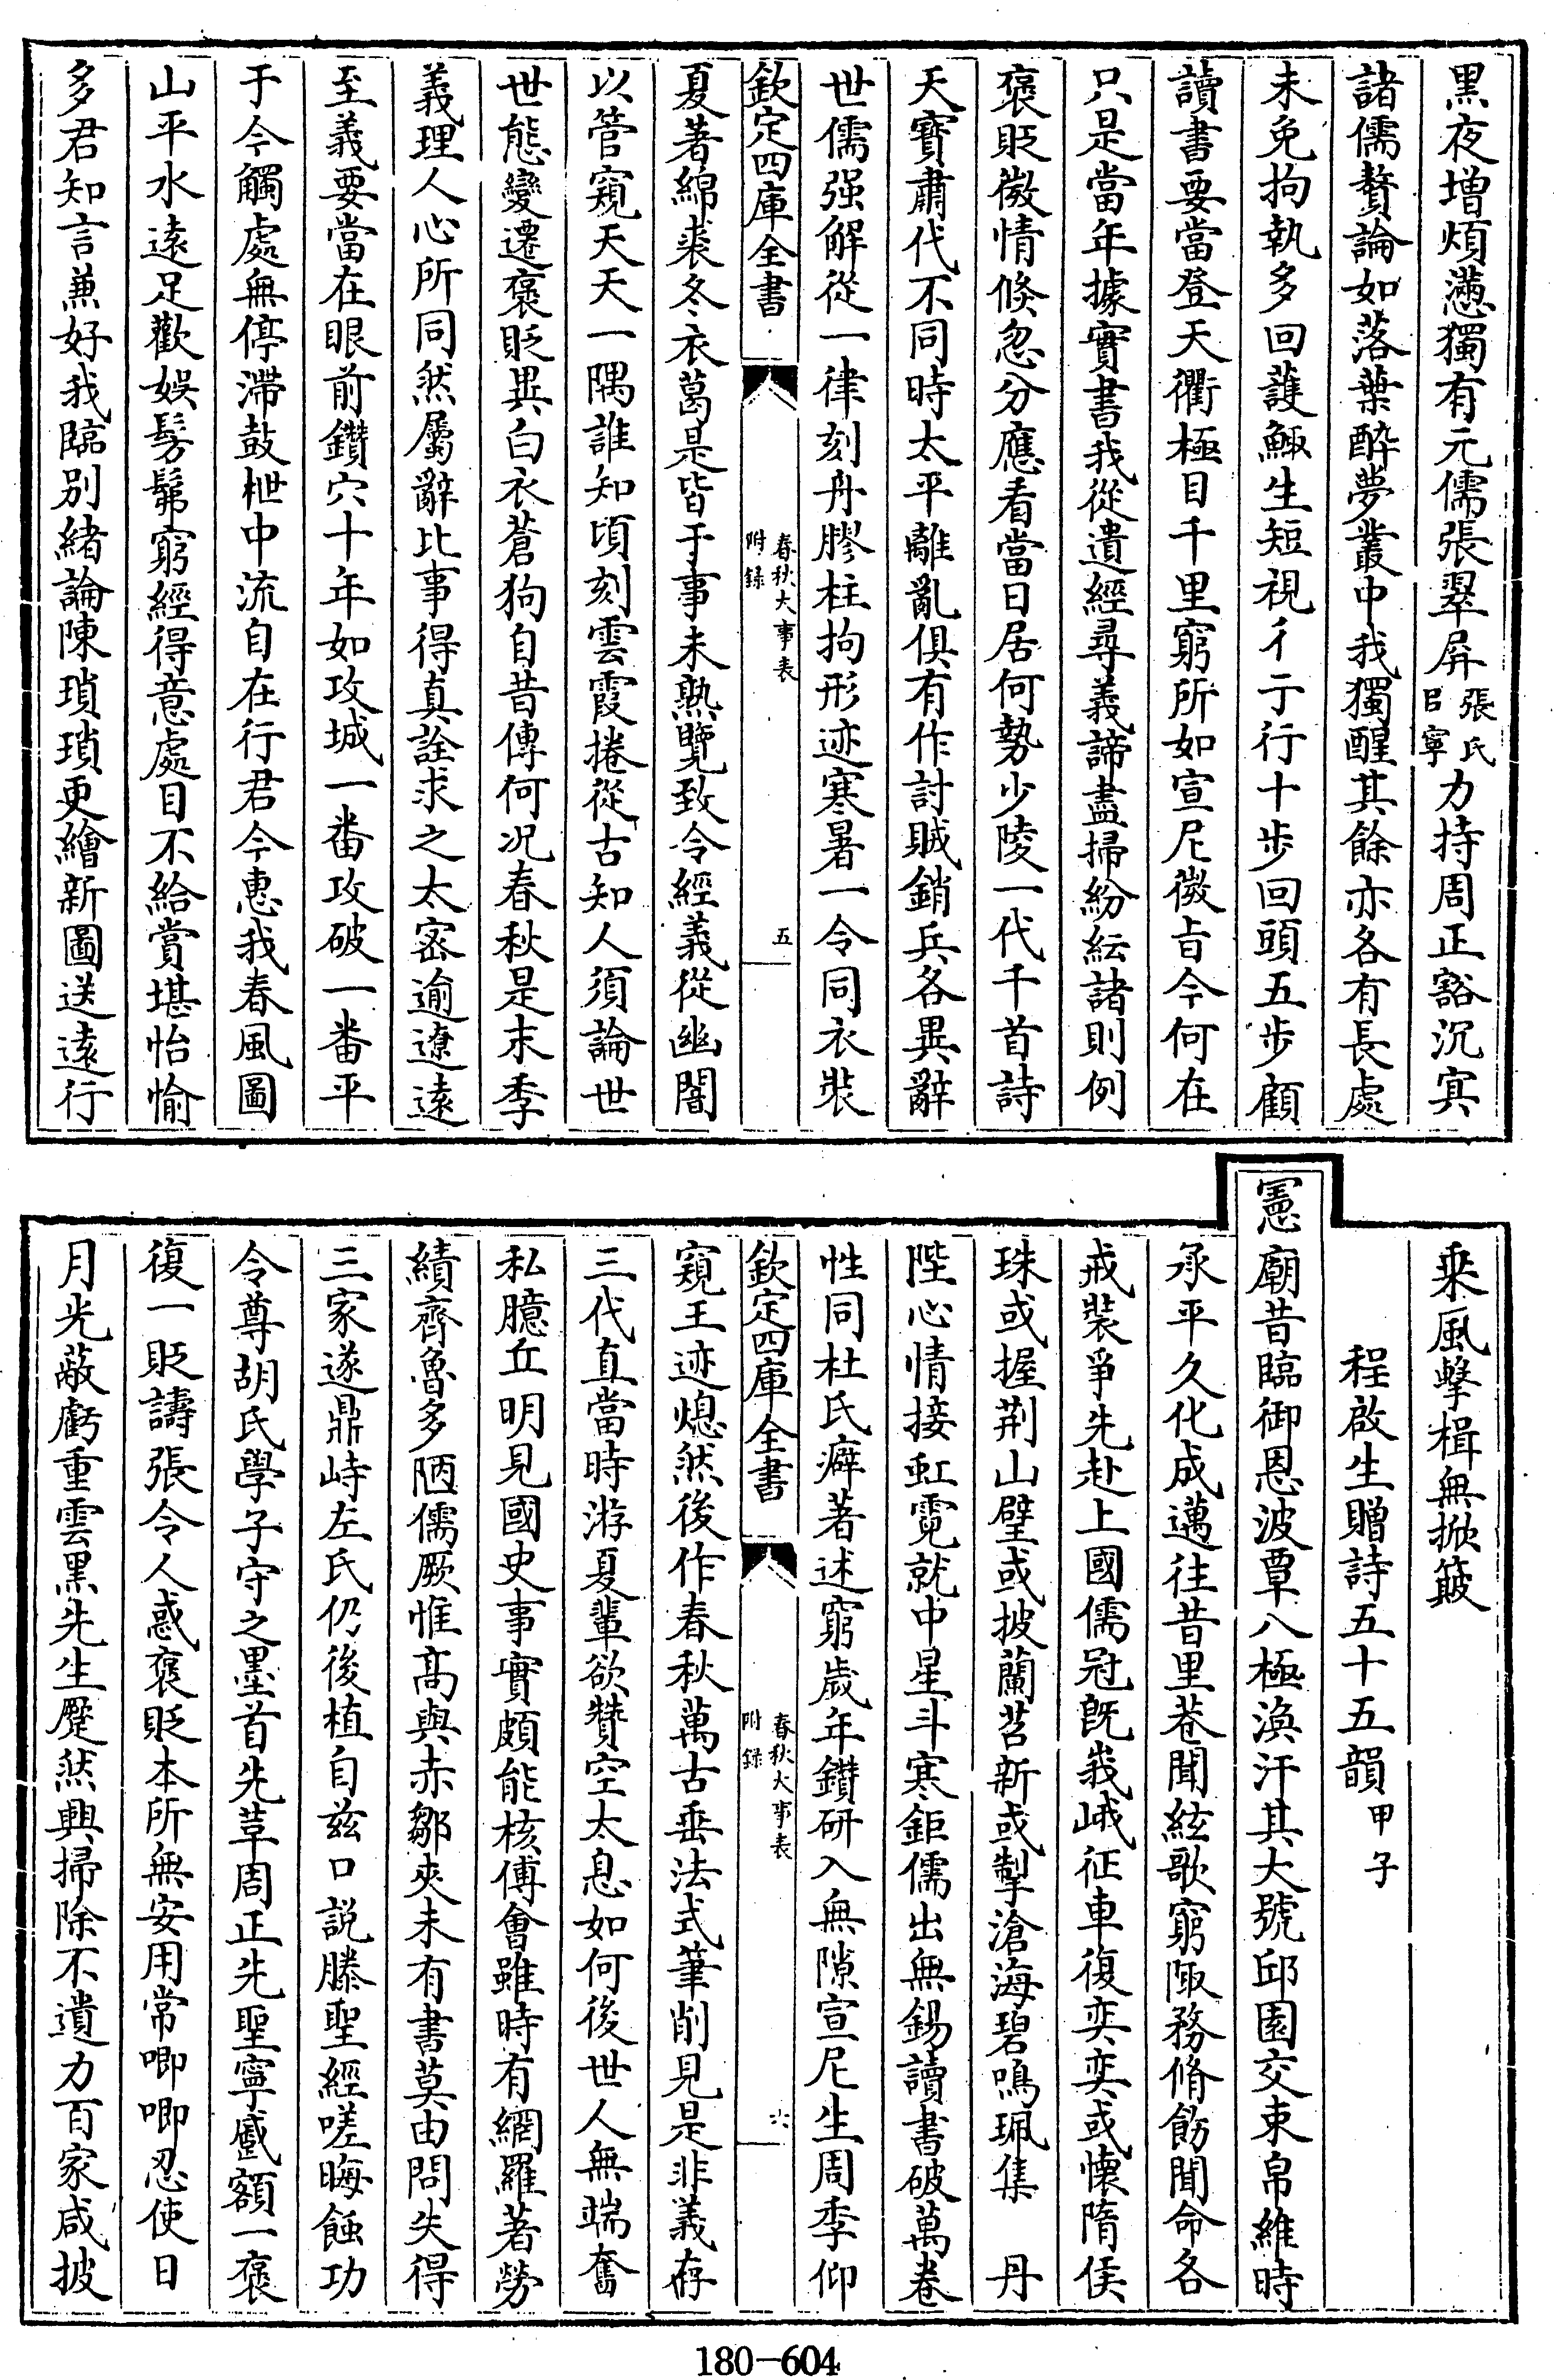 黑夜增煩懣獨有元儒張翠屏張氏㠯寧力持周正豁沉㝠
諸儒贅論如落葉醉夢叢中我獨醒其餘亦各有長處
未免拘執多回護鯫生短視彳亍行十步回頭五步顧
讀書要當登天衢極目千里窮所如宣尼微㫖今何在
只是當年據實書我從遺經尋義諦盡掃紛紜諸則例
褒貶微情倏忽分應看當日居何勢少陵一代千首詩
天寶肅代不同時太平離亂俱有作討賊銷兵各異辭
世儒强解從一律刻舟膠柱拘形迹寒暑一令同衣裝
欽定四庫全書
春秋大事表
附録
五
夏著綿裘冬衣葛是皆于事未熟覽致令經義從幽闇
以管窺天天一隅誰知頃刻雲霞捲從古知人須論世
世態變遷褒貶異白衣蒼狗自昔傳何况春秋是末季
義理人心所同然屬辭比事得真詮求之太密逾遼遠
至義要當在眼前鑽穴十年如攻城一番攻破一番平
于今觸處無停滯鼓枻中流自在行君今惠我春風圖
山平水遠足歡娯髣髴窮經得意處目不給賞堪怡愉
多君知言兼好我臨別緒論陳瑣瑣更繪新圖送遠行
乗風擊楫無掀簸
程啟生贈詩五十五韻甲子
憲廟昔臨御恩波覃八極渙汗其大號邱園交束帛維時
承平久化成邁往昔里巷聞絃歌窮陬務脩飭聞命各
戒裝爭先赴上國儒冠旣峩峨征車復奕奕或懐隋侯
珠或握荆山璧或披蘭苕新或掣滄海碧鳴珮集 丹
陛心情接虹霓就中星斗寒鉅儒出無錫讀書破萬卷
性同杜氏癖著述窮歲年鑽研入無隙宣尼生周季仰
欽定四庫全書
春秋大事表
附録
六
窺王迹熄然後作春秋萬古垂法式筆削見是非義存
三代直當時游夏輩欲贊空太息如何後世人無端奮
私臆丘明見國史事實頗能核傅會雖時有網羅著勞
績齊魯多陋儒厥惟髙與赤鄒夾未有書莫由問失得
三家遂鼎峙左氏仍後植自兹口説滕聖經嗟晦蝕功
令尊胡氏學子守之墨首先葦周正先聖寧蹙額一褒
復一貶譸張令人惑褒貶本所無安用常唧唧忍使日
月光蔽虧重雲黒先生蹷然興掃除不遺力百家咸披
180-604